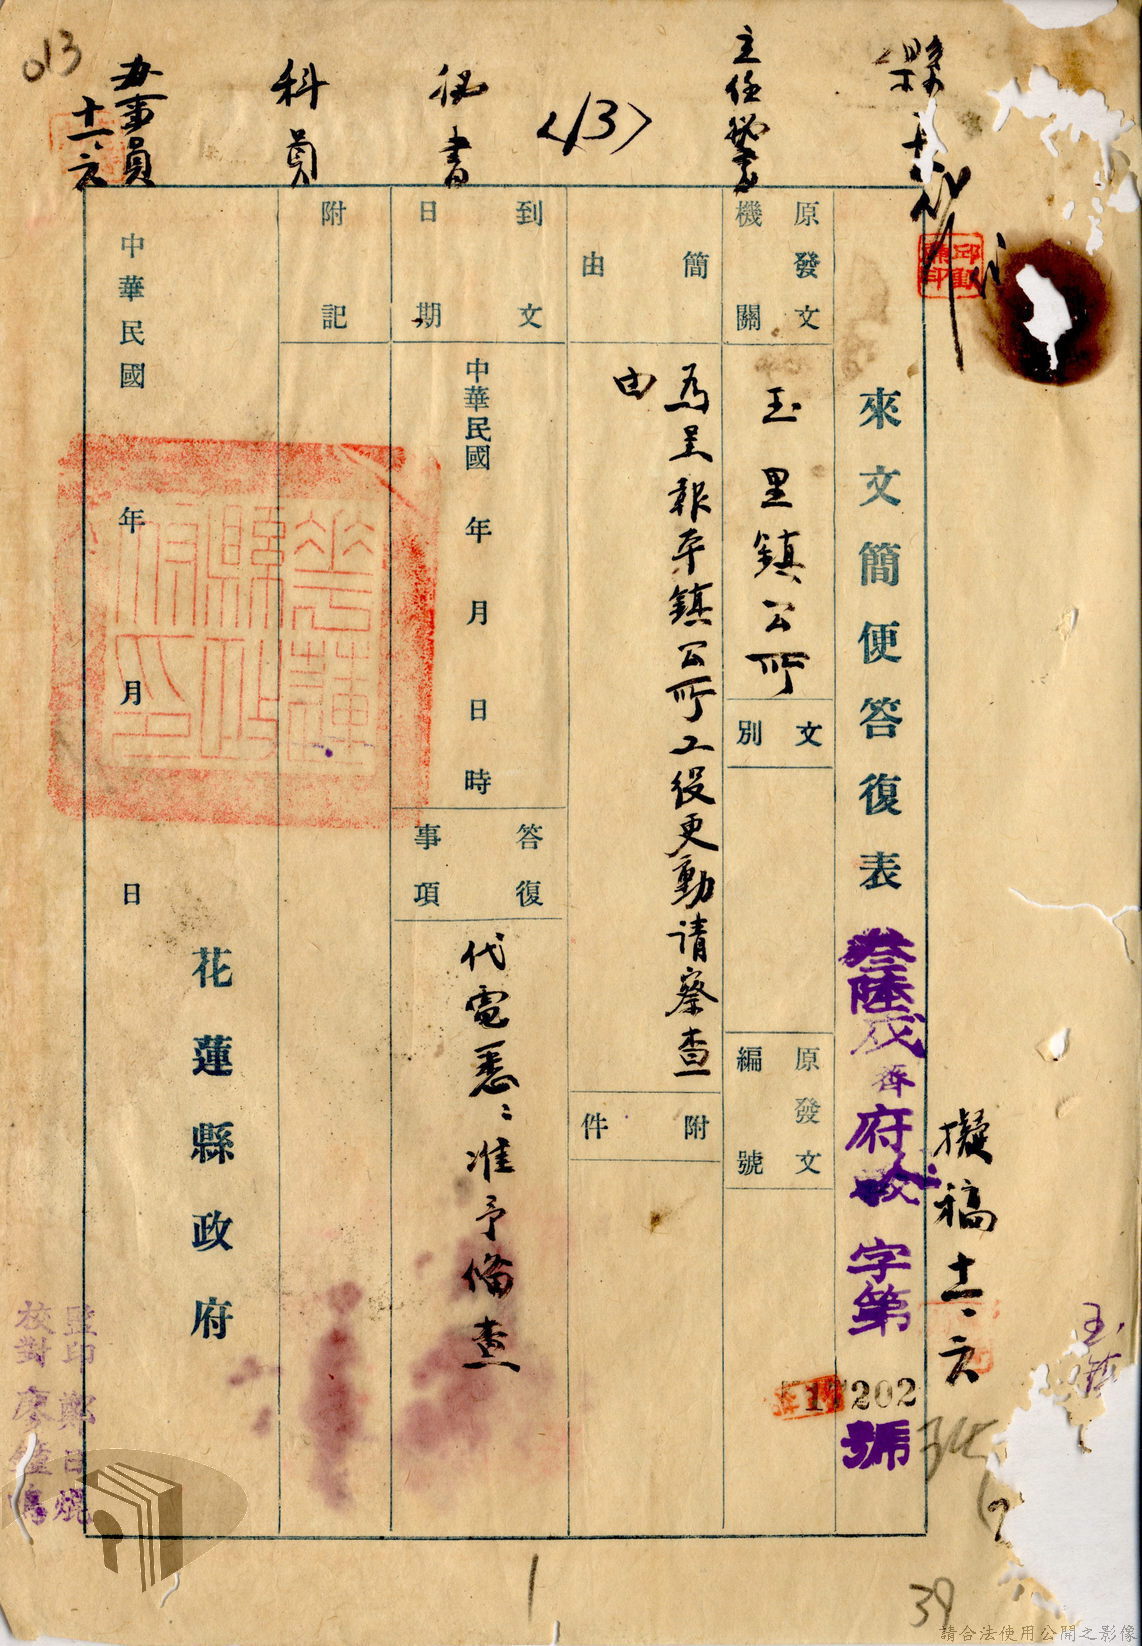 縣長
主任秘書
<13>
秘書
科員
辦事員
十一、六
013
擬稿 十一、六
來文簡便答復表
叁陸戌 府 字第17202號
原發文機關
玉里鎮公所
文別
原發文編號
簡由
為呈報本鎮公所工役更動請察查
由
附件
到文日期
中華民國 年 月 日 時
答復事項
代電悉：准予備查
附記
中華民國 年 月 日
花蓮縣政府
花蓮縣政府印
監印 鄭
校對 廖
玉鎮
39
請合法使用公開之影像